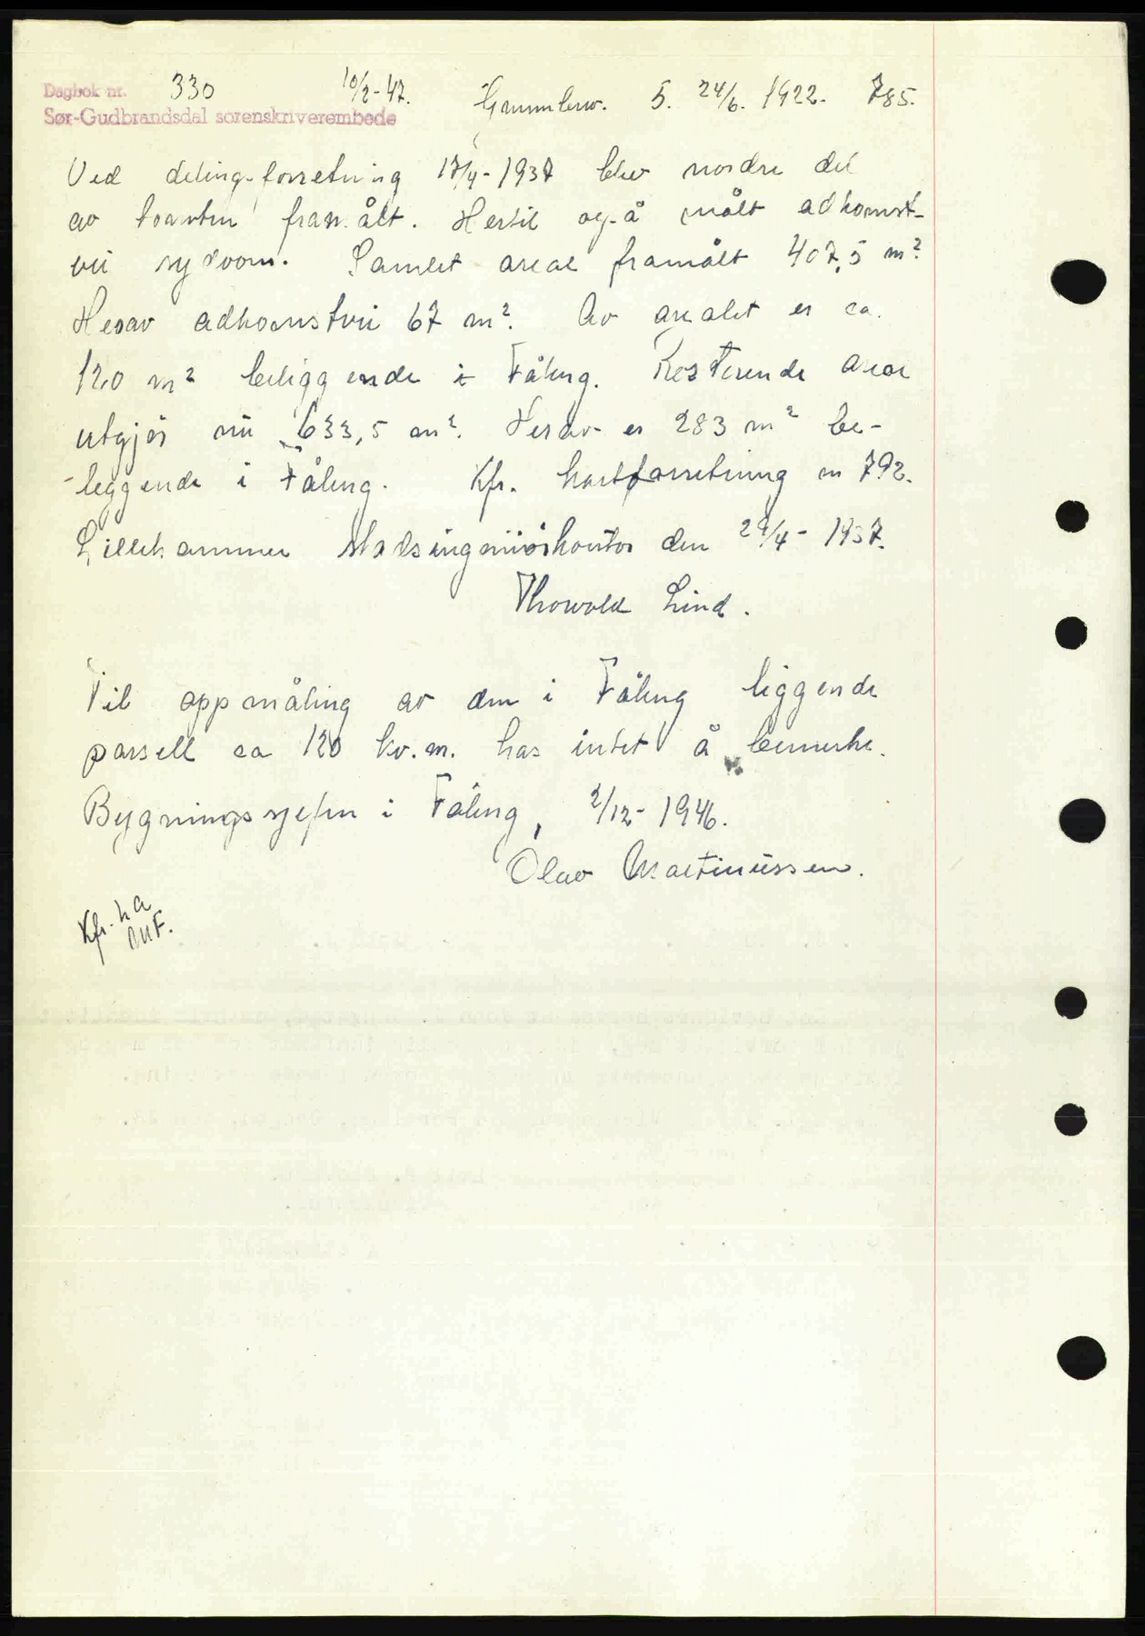 Dagbok nr. 330 10/2-47. Grunnbrev. 5. 24/6. 1922. 785.
Sør-Gudbrandsdal sorenskriverembede
Ved delingsforretning 17/4-1937 blev nordre del
av tomten framålt. Hertil også målt adkomst-
vei syd om. Samlet areal framålt 407,5 m²
Herav adkomstvei 67 m². Av arealet er ca.
120 m² beliggende i Fåberg. Resterende areal
utgjør nu 633,5 m². Herav er 283 m² be-
liggende i Fåberg. Kfr. kartforretning nr 792.
Lillehammer stadsingeniørkontor den 29/4-1937.
Thorvald Lind.
Til oppmåling av den i Fåberg liggende
parsell ca 120 kv.m. has intet å bemerke.
Bygningssjefen i Fåberg, 2/12-1946.
Olav Martinussen.
Kfr.